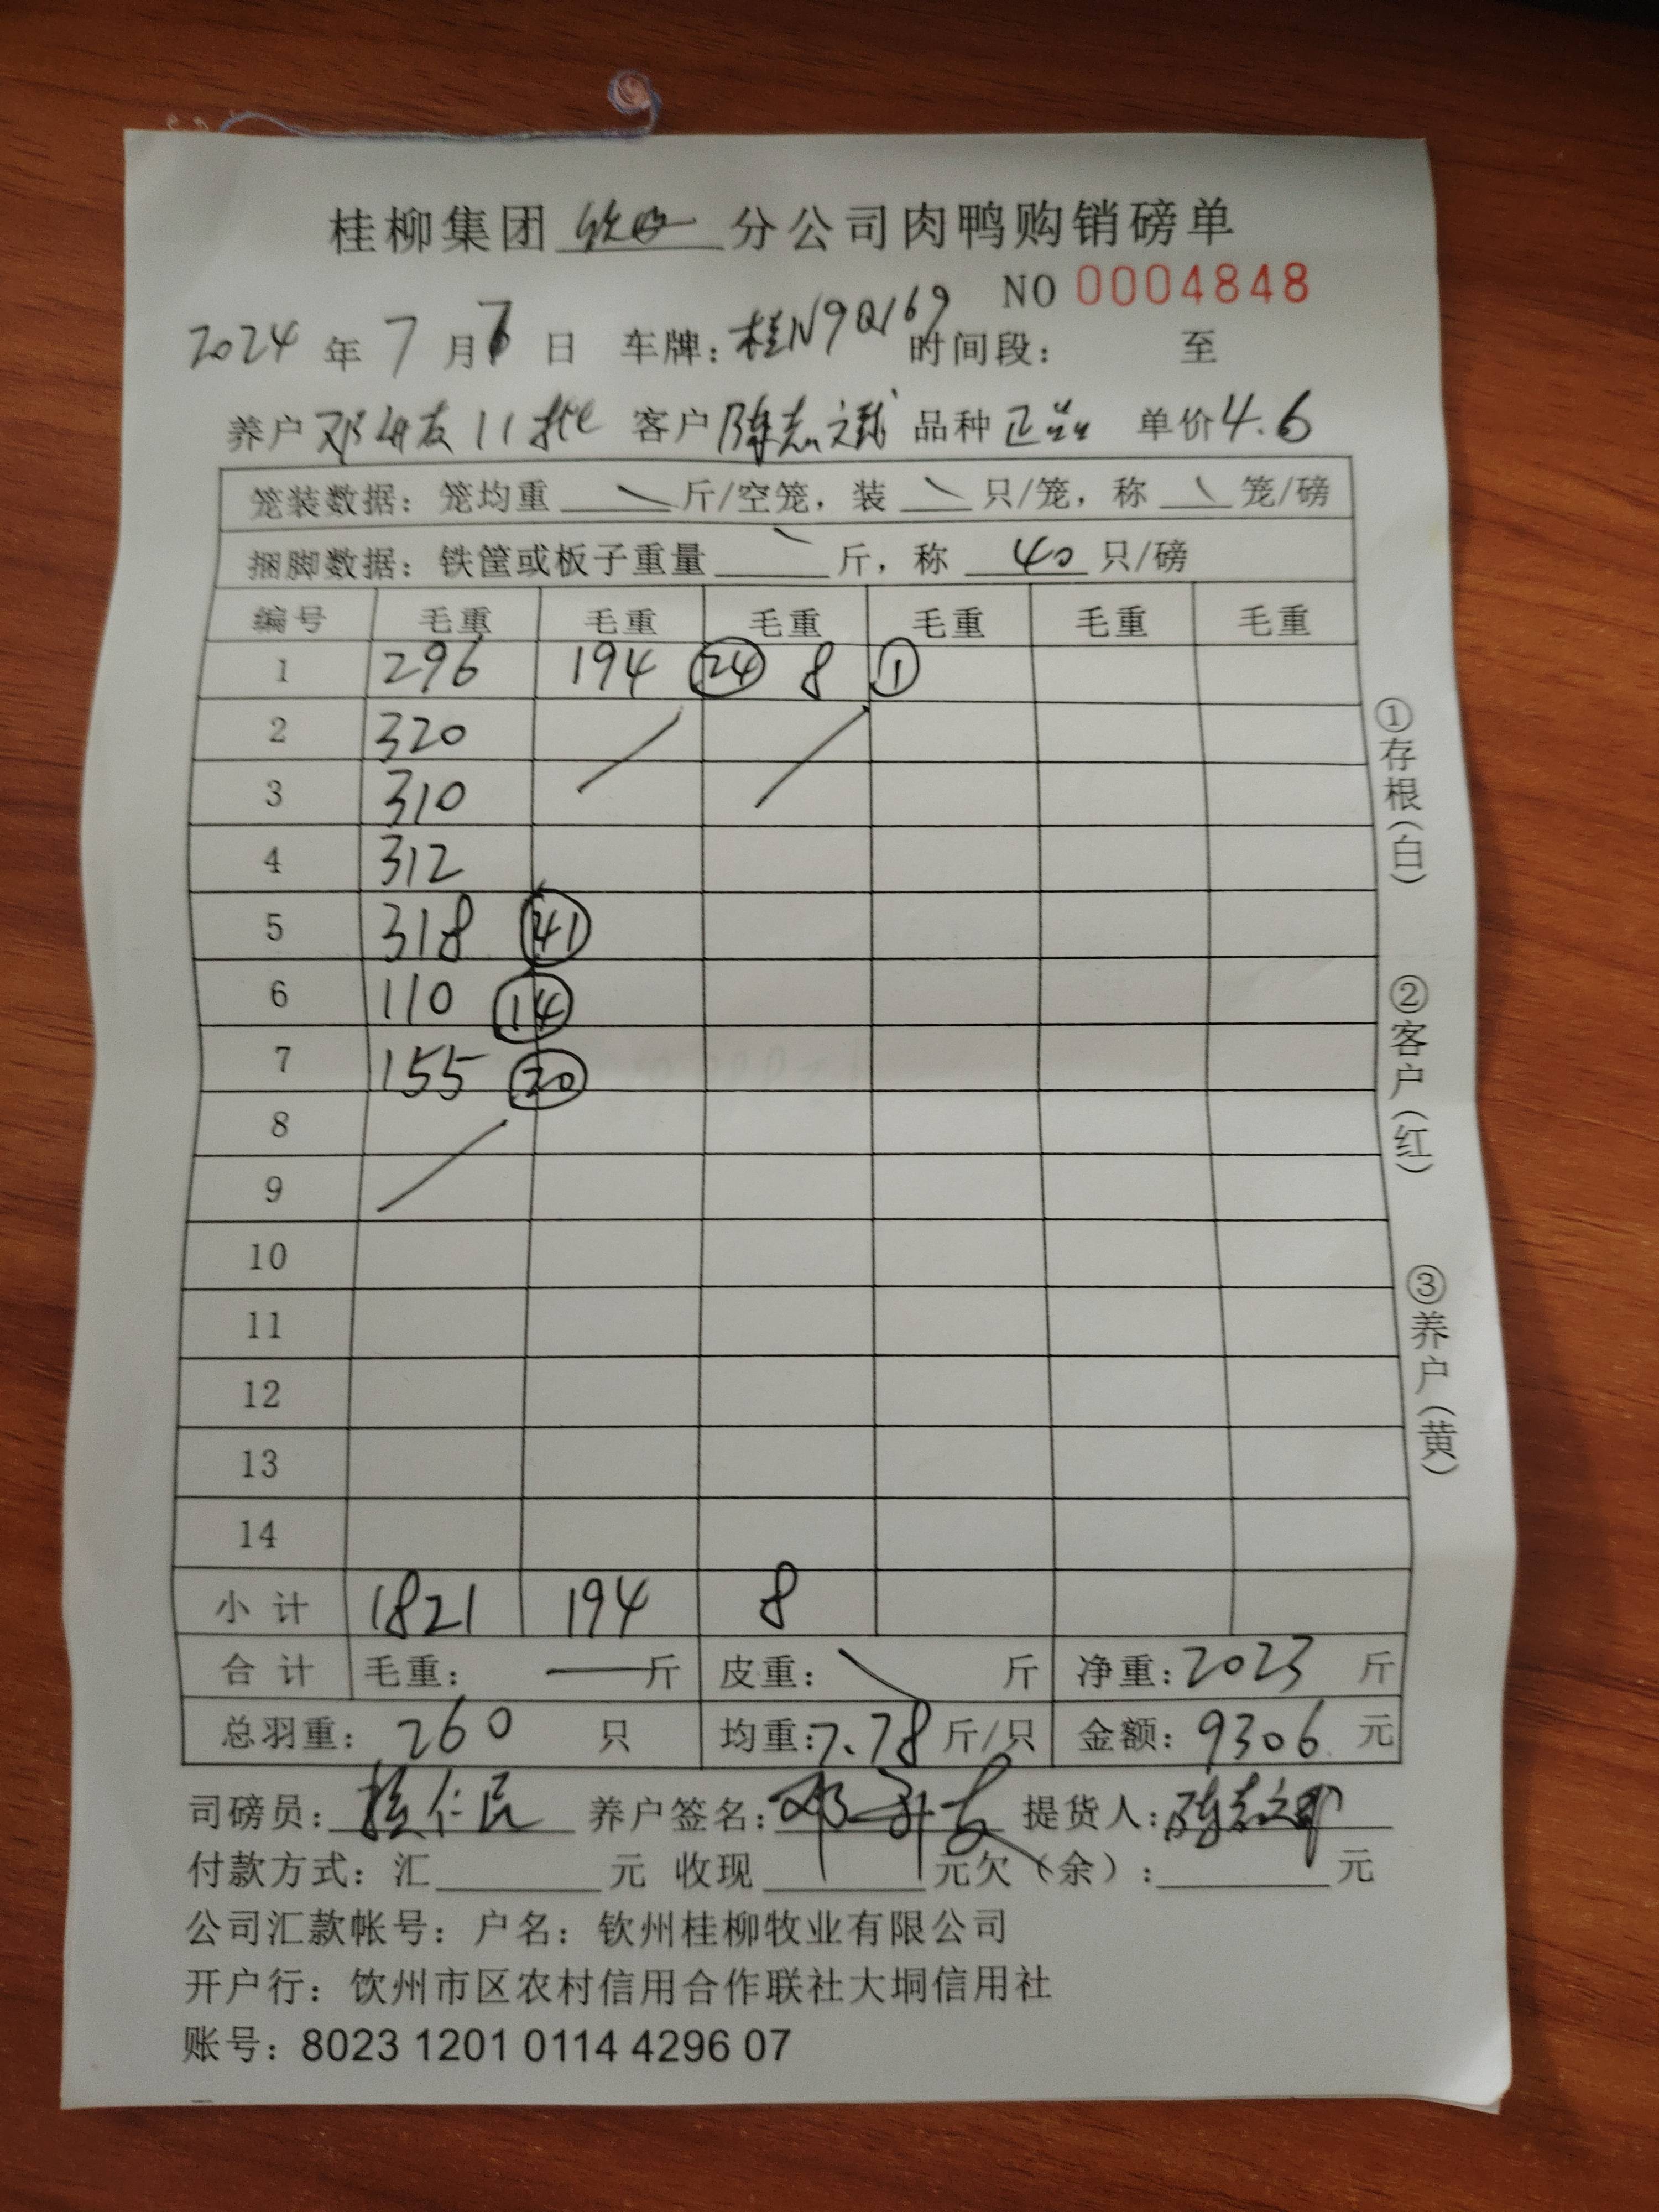 桂柳集团 钦州 分公司肉鸭购销磅单
NO 0004848
2024 年 7 月 日 车牌：桂N9Q169 时间段： 至
养户 邓 友 11批 客户 陈志文 品种 正品 单价 4.6
笼装数据：笼均重 斤/空笼，装 只/笼，称 笼/磅
捆脚数据：铁筐或板子重量 斤，称 40 只/磅
编号 毛重 毛重 毛重 毛重 毛重 毛重
1 296 194 (24) 8 (1)
2 320
3 310
4 312
5 318 (41)
6 110 (14)
7 155 (20)
8
9
10
11
12
13
14
小计 1821 194 8
合计 毛重： 斤 皮重： 斤 净重：2023 斤
总羽重：260 只 均重：7.78 斤/只 金额：9306 元
司磅员： 仁民 养户签名：邓 友 提货人：陈志文
付款方式：汇 元 收现 元欠（余）： 元
公司汇款帐号：户名：钦州桂柳牧业有限公司
开户行：饮州市区农村信用合作联社大垌信用社
账号：8023 1201 0114 4296 07
①存根（白）
②客户（红）
③养户（黄）